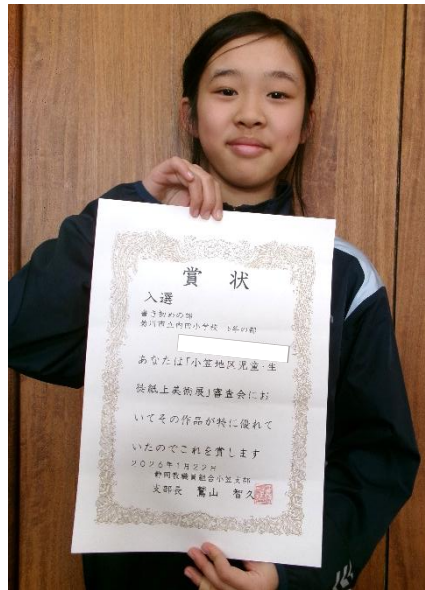 賞状
入選
書き初めの部
菊川市立内田小学校 6年の部
あなたは「小笠地区児童・生
徒紙上美術展」審査会にお
いてその作品が特に優れて
いたのでこれを賞します
2026年1月22日
静岡教職員組合小笠支部
支部長 鷲山 智久